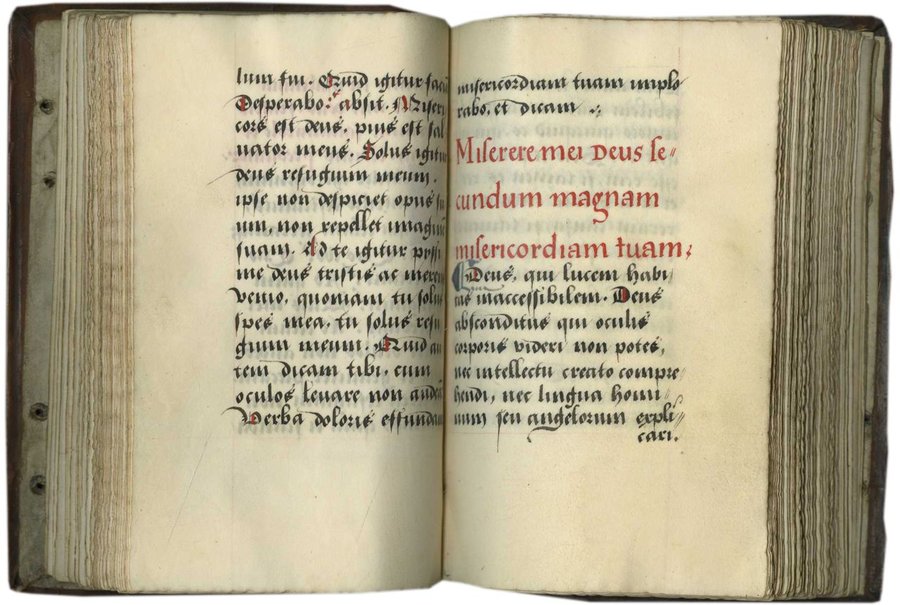 lum fui. Quid igitur faciā
Desperabo? absit. Miseri
cors est deus, pius est sal
uator meus. Solus igitur
deus refugium meum.
ipse non despiciet opus su
um, non repellet imaginē
suam. Ad te igitur pyssi
me deus tristis ac merens
venio, quoniam tu solus
spes mea, tu solus refu
gium meum. Quid au
tem dicam tibi, cum
oculos leuare non audeā
Verba doloris effundam
misericordiam tuam implo
rabo, et dicam
Miserere mei Deus se-
cundum magnam
misericordiam tuam;
Deus, qui lucem habi
tas inaccessibilem. Deus
absconditus qui oculis
corporis videri non potes,
nec intellectu creato compre
hendi, nec lingua homi
num seu angelorum expli
cari.